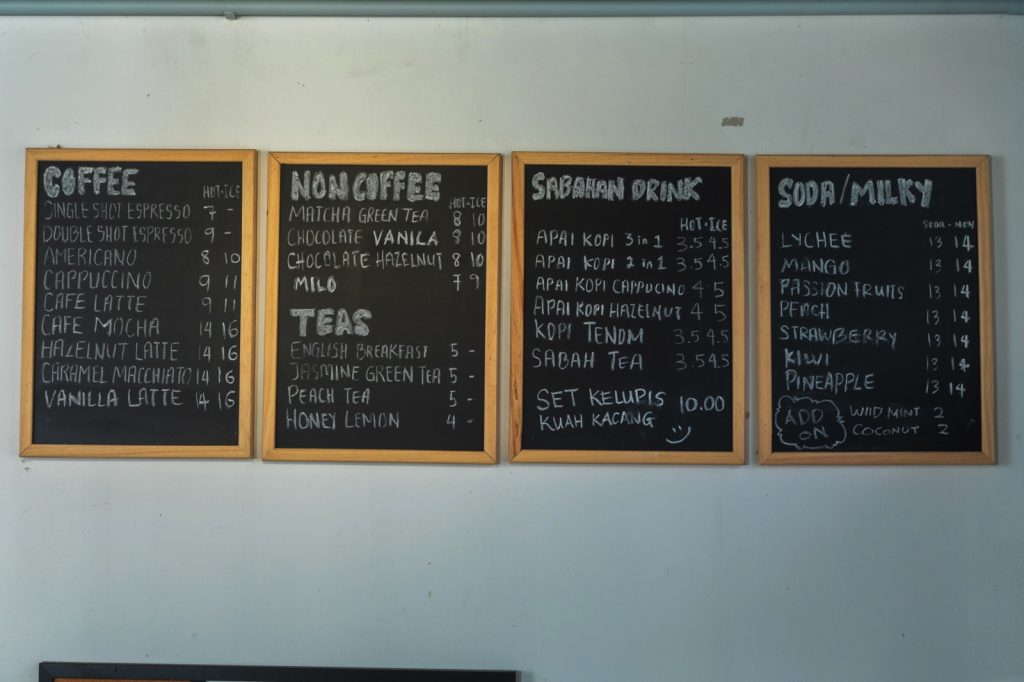 COFFEE
HOT-ICE
SINGLE SHOT ESPRESSO 7 -
DOUBLE SHOT ESPRESSO 9 -
AMERICANO 8 10
CAPPUCCINO 9 11
CAFE LATTE 9 11
CAFE MOCHA 14 16
HAZELNUT LATTE 14 16
CARAMEL MACCHIATO 14 16
VANILLA LATTE 14 16
NON COFFEE
HOT-ICE
MATCHA GREEN TEA 8 10
CHOCOLATE VANILA 8 10
CHOCOLATE HAZELNUT 8 10
MILO 7 9
TEAS
ENGLISH BREAKFAST 5 -
JASMINE GREEN TEA 5 -
PEACH TEA 5 -
HONEY LEMON 4 -
SABAHAN DRINK
HOT-ICE
APAI KOPI 3 in 1 3.5 4.5
APAI KOPI 2 in 1 3.5 4.5
APAI KOPI CAPPUCINO 4 5
APAI KOPI HAZELNUT 4 5
KOPI TENOM 3.5 4.5
SABAH TEA 3.5 4.5
SET KELUPIS 10.00
KUAH KACANG
SODA/MILKY
SODA-
LYCHEE 13 14
MANGO 13 14
PASSION FRUITS 13 14
PEACH 13 14
STRAWBERRY 13 14
KIWI 13 14
PINEAPPLE 13 14
ADD ON
WIID MINT 2
COCONUT 2